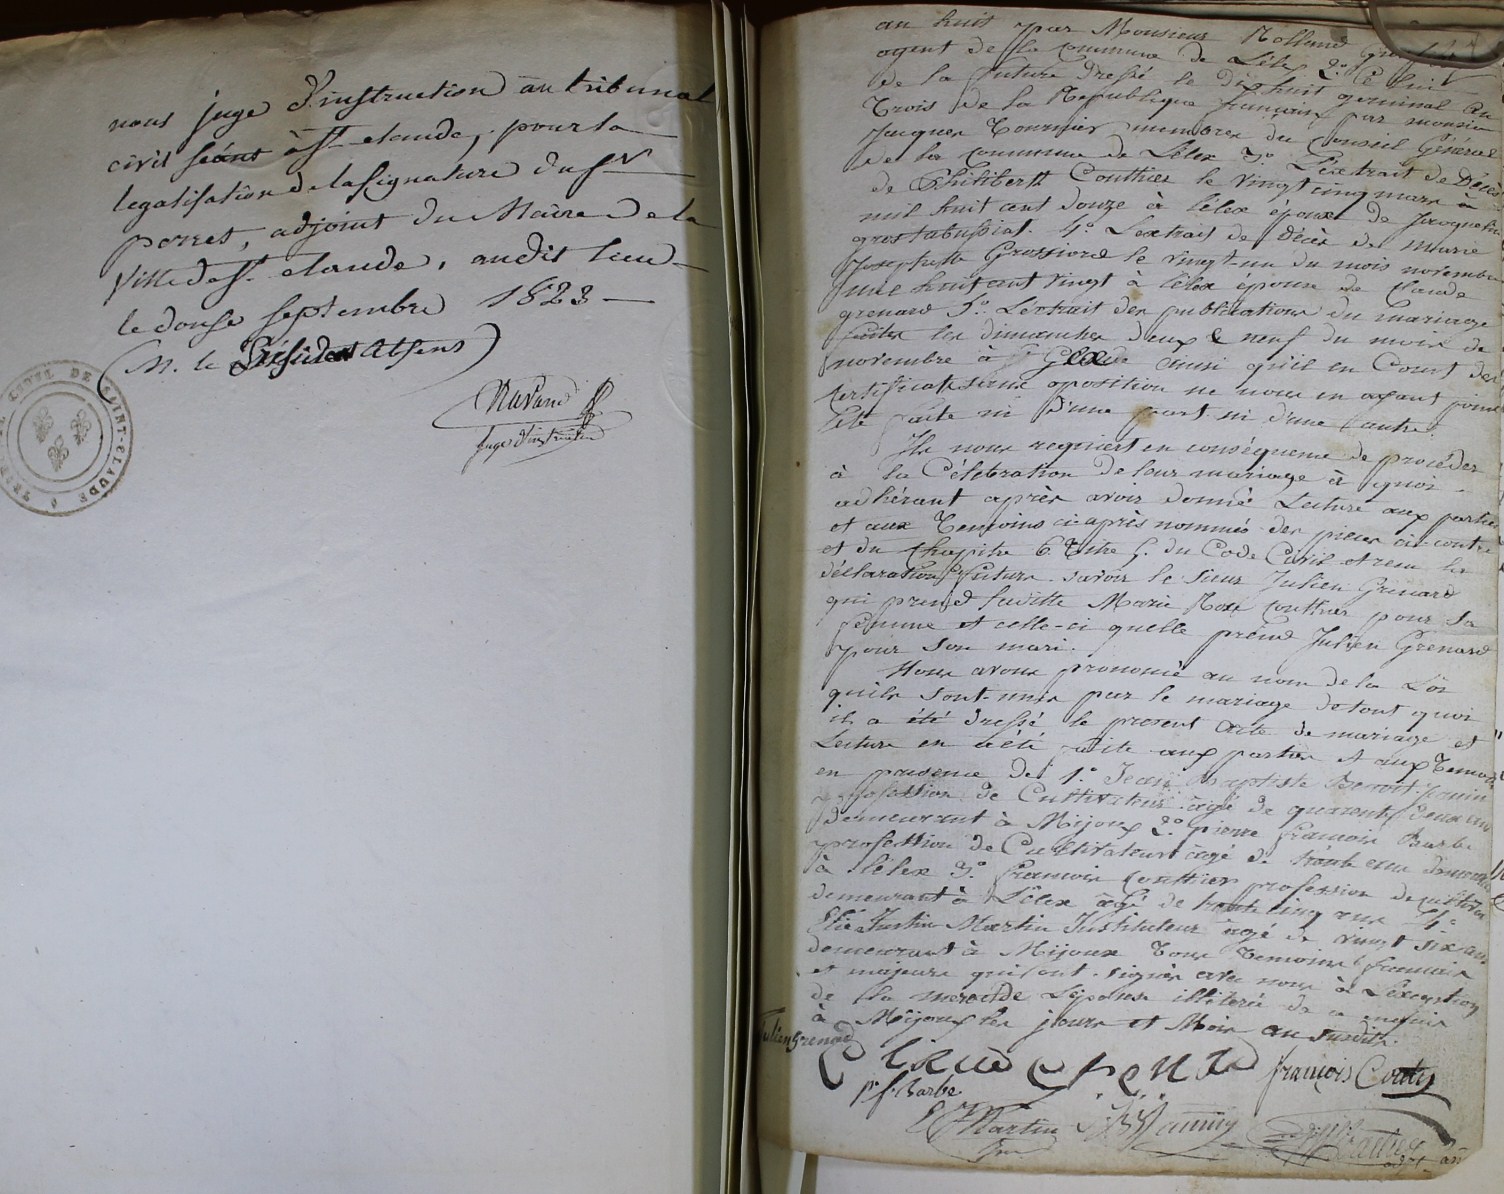 nous juge d'instruction au tribunal
civil séant à St. claude, pour la
legalisation de la signature du Sr
perret, adjoint du Maire de la
Ville de St. claude, audit lieu
le douse septembre 1823
(M. le Président absens)
Juge d'instruction
TRIBUNAL CIVIL DE SAINT-CLAUDE
an huit par Monsieur Rolland
agent de la commune de Lélex 2o
de la future dressé le dix huit germinal an
Trois de la République française par monsieur
Jacques Tournier membres du Conseil Général
de la commune de Lélex 3o L'extrait de Décès
de Philibert Couthier le vingt cinq mars
mil huit cent douze à Lélex époux de Jacqueline
grostabussiat. 4o L'extrait de décès de Marie
Josephette Grossiord le vingt-un du mois novembre
mil huit cent vingt à Lélex épouse de Claude
grenard 5o L'extrait des publications du mariage
faites les dimanches deux & neuf du mois de
novembre à ainsi qu'il en Conste des
certificats oposition ne nous en ayant point
été faite ni d'une part ni d'une autre.
Ils nous requiert en conséquence de procéder
à la Célébration de leur mariage à quoi
adhérant après avoir donné Lecture aux parties
et aux Temoins ci après nommés des pièces ci contre
et du Chapitre 6 Titre 5. du Code Civil et reçu la
déclaration future savoir le sieur Julien Grenard
qui prend laditte Marie Rose Couthier pour sa
femme et celle-ci quelle prend Julien Grenard
pour son mari.
Nous avons prononcé au nom de la Loi
quils sont unis par le mariage de tout quoi
il a été dressé le present acte de mariage et
Lecture en a été faite aux parties et aux Temoins
en presence de 1o Jean Baptiste Benoit
profession de Cultivateur agé de quarente deux ans
demeurant à Mijoux 2o pierre françois Barbe
profession de Cultivateur agé de trente demeurant
à Lélex 3o françois Couthier profession de cultiva
demeurant à Lélex âgé de trente cinq ans 4o
Elie Justin Martin Instituteur agé de vingt six ans
demeurant à Mijoux Tous Temoins françois
et majeurs qui ont signés avec nous à L'exception
de la L'épouse illiterée de ce enquis
à Mijoux les jours et Mois an susdits.
Julien grenard
françois Couty
p. f. Barbe
E J Martin